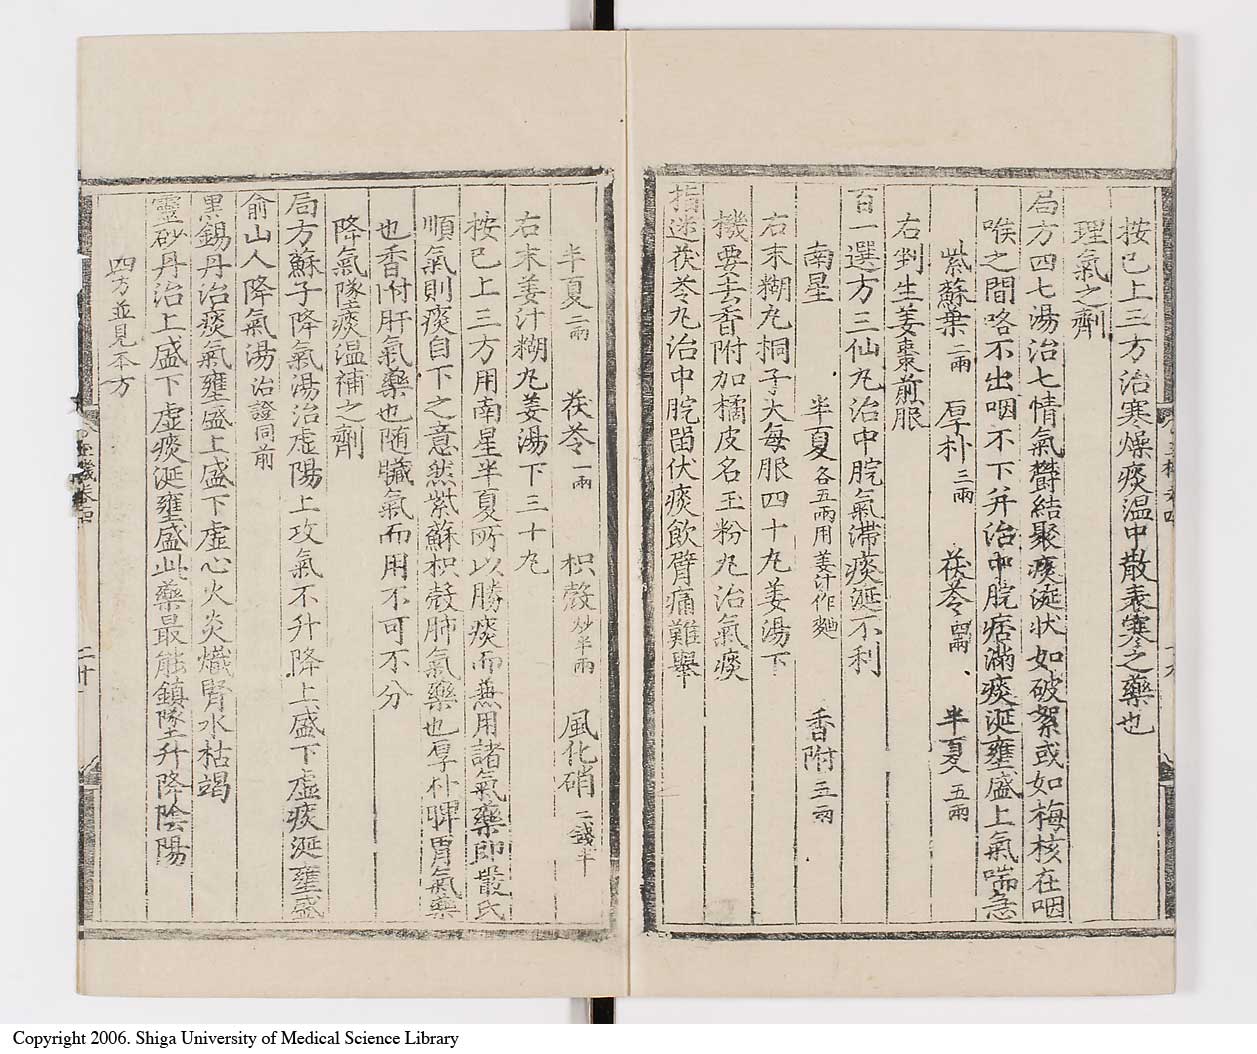 按已上三方治寒燥痰温中散表寒之藥也
理氣之劑
局方四七湯治七情氣欝結聚痰涎状如破絮或如梅核在咽
喉之間咯不出咽不下并治中脘痞滿痰涎壅盛上氣喘急
紫蘇葉二兩 厚朴三兩 茯苓四兩 半夏五兩
右剉生姜棗煎服
百一選方三仙丸治中脘氣滯痰涎不利
南星 半夏各五兩用姜汁作麯 香附五兩
右末糊丸桐子大每服四十丸姜湯下
機要去香附加橘皮名玉粉丸治氣痰
指迷茯苓丸治中脘留伏痰飲臂痛難舉
半夏二兩 茯苓一兩 枳殼炒半兩 風化硝二錢半
右末姜汁糊丸姜湯下三十丸
按已上三方用南星半夏所以勝痰而兼用諸氣藥即嚴氏
順氣則痰自下之意然紫蘇枳殼肺氣藥也厚朴脾胃氣藥
也香附肝氣藥也随臟氣而用不可不分
降氣墜痰温補之劑
局方蘇子降氣湯治虚陽上攻氣不升降上盛下虚痰涎壅盛
俞山人降氣湯治證同前
黒錫丹治痰氣壅盛上盛下虚心火炎熾腎水枯竭
靈砂丹治上盛下虚痰涎壅盛此藥最能鎮墜升降陰陽
四方並見本方
二十一
Copyright 2006. Shiga University of Medical Science Library